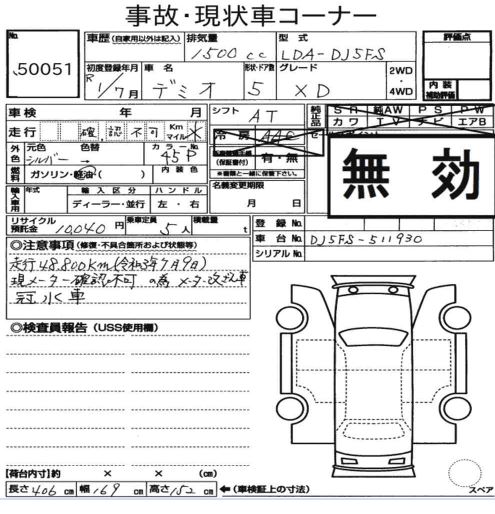 事故・現状車コーナー
No. 50051
車歴（自家用以外は記入） 排気量 1500cc 型式 LDA-DJ5FS 評価点
初度登録年月 R1/7月 車名 デミオ 形状・ドア数 5 グレード XD 2WD・4WD 内装補助評価
車検 年 月 シフト AT 純正品 SR 純AW PS PW
走行 確認不可 Kmマイル 冷房 AAC カワ TV ナビ エアB
外色 元色 シルバー 色替 → カラーNo. 45P 有・無
燃料 ガソリン・軽油（ ） 内装色 （保証書付） ※書類と一緒に保管下さい。
無効
輸入車用 年式 輸入区分 ハンドル 名義変更期限
ディーラー・並行 左・右 月 日
リサイクル預託金 10,040円 乗車定員 5人 積載量 t 登録No.
車台No. DJ5FS-511930
シリアルNo.
◎注意事項（修復・不具合箇所および状態等）
走行48,800Km(令和3年7月9日)
現メーター確認不可の為メーター改ざん車
冠水車
◎検査員報告（USS使用欄）
【荷台内寸】約 × × （cm）
長さ 406 cm 幅 169 cm 高さ 152 cm ←（車検証上の寸法）
スペア